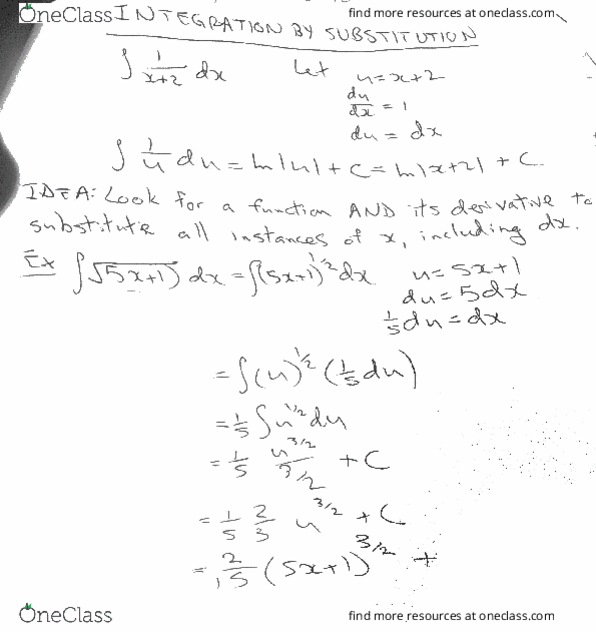 OneClass find more resources at oneclass.com
INTEGRATION BY SUBSTITUTION
∫ 1/(x+2) dx Let u=x+2
du/dx = 1
du = dx
∫ 1/u du = ln|u| + C = ln|x+2| + C.
IDEA: Look for a function AND its derivative to
substitute all instances of x, including dx.
Ex ∫√(5x+1) dx = ∫(5x+1)^1/2 dx u=5x+1
du=5dx
1/5 du = dx
= ∫(u)^1/2 (1/5 du)
= 1/5 ∫u^1/2 du
= 1/5 u^3/2 / 3/2 + C
= 1/5 2/3 u^3/2 + C
= 2/15 (5x+1)^3/2 +
OneClass find more resources at oneclass.com